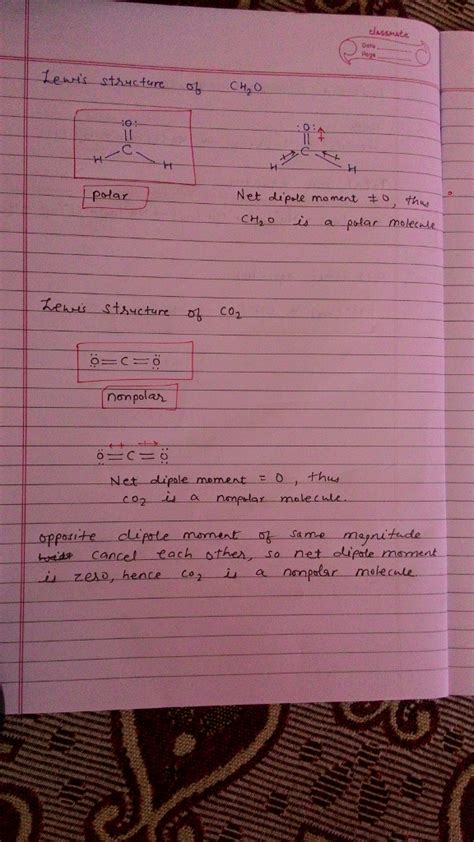 classmate
Date
Page
Lewis structure of CH₂O
:O: :O:
|| ||
C C
H H H H
polar
Net dipole moment ≠ 0, thus
CH₂O is a polar molecule
Lewis structure of CO₂
Ö=C=Ö
nonpolar
Ö=C=Ö
Net dipole moment = 0, thus
CO₂ is a nonpolar molecule.
opposite dipole moment of same magnitude
cancel each other, so net dipole moment
is zero, hence CO₂ is a nonpolar molecule.